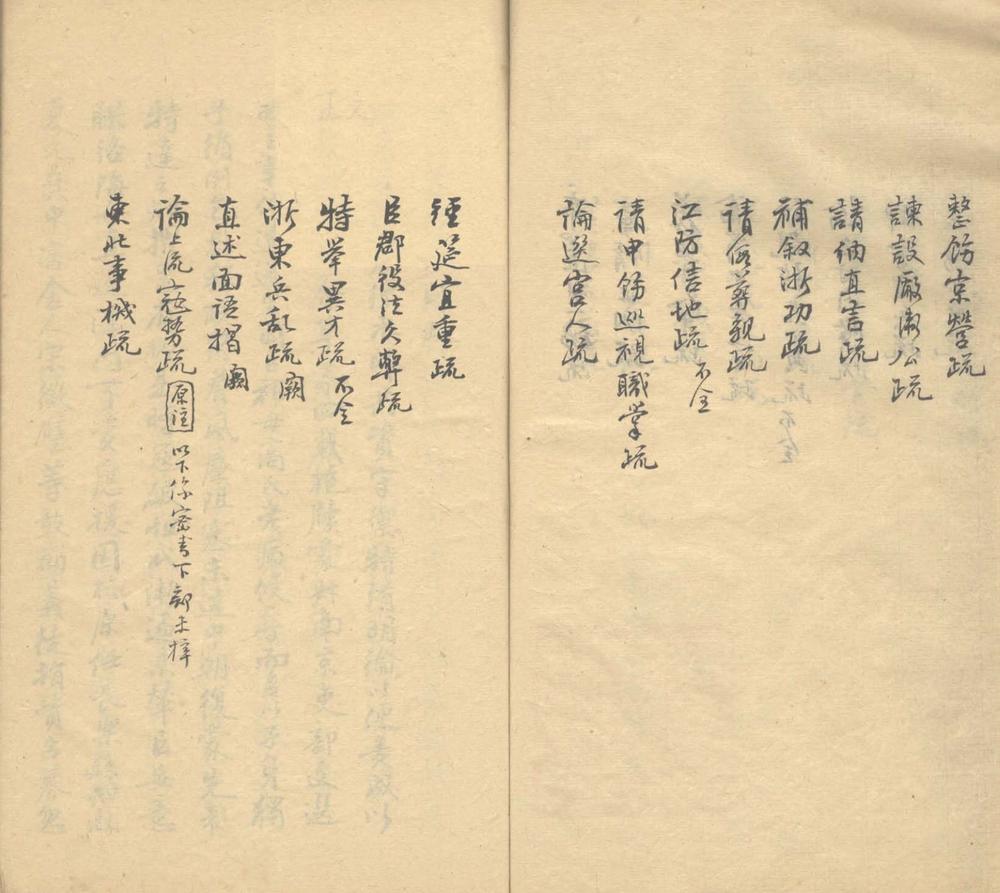 整飭京營疏
諫設廠衛公疏
請納直言疏
補敘浙功疏
請省葬親疏
江防信地疏 不全
請申飭巡視職掌疏
論選宮人疏
經筵宜重疏
臣郡役法久弊疏
特举異才疏 不全
浙東兵乱疏 闕
直述面语揭 闕
論上流寇势疏 原注 以下係密書下部未梓
東北事機疏